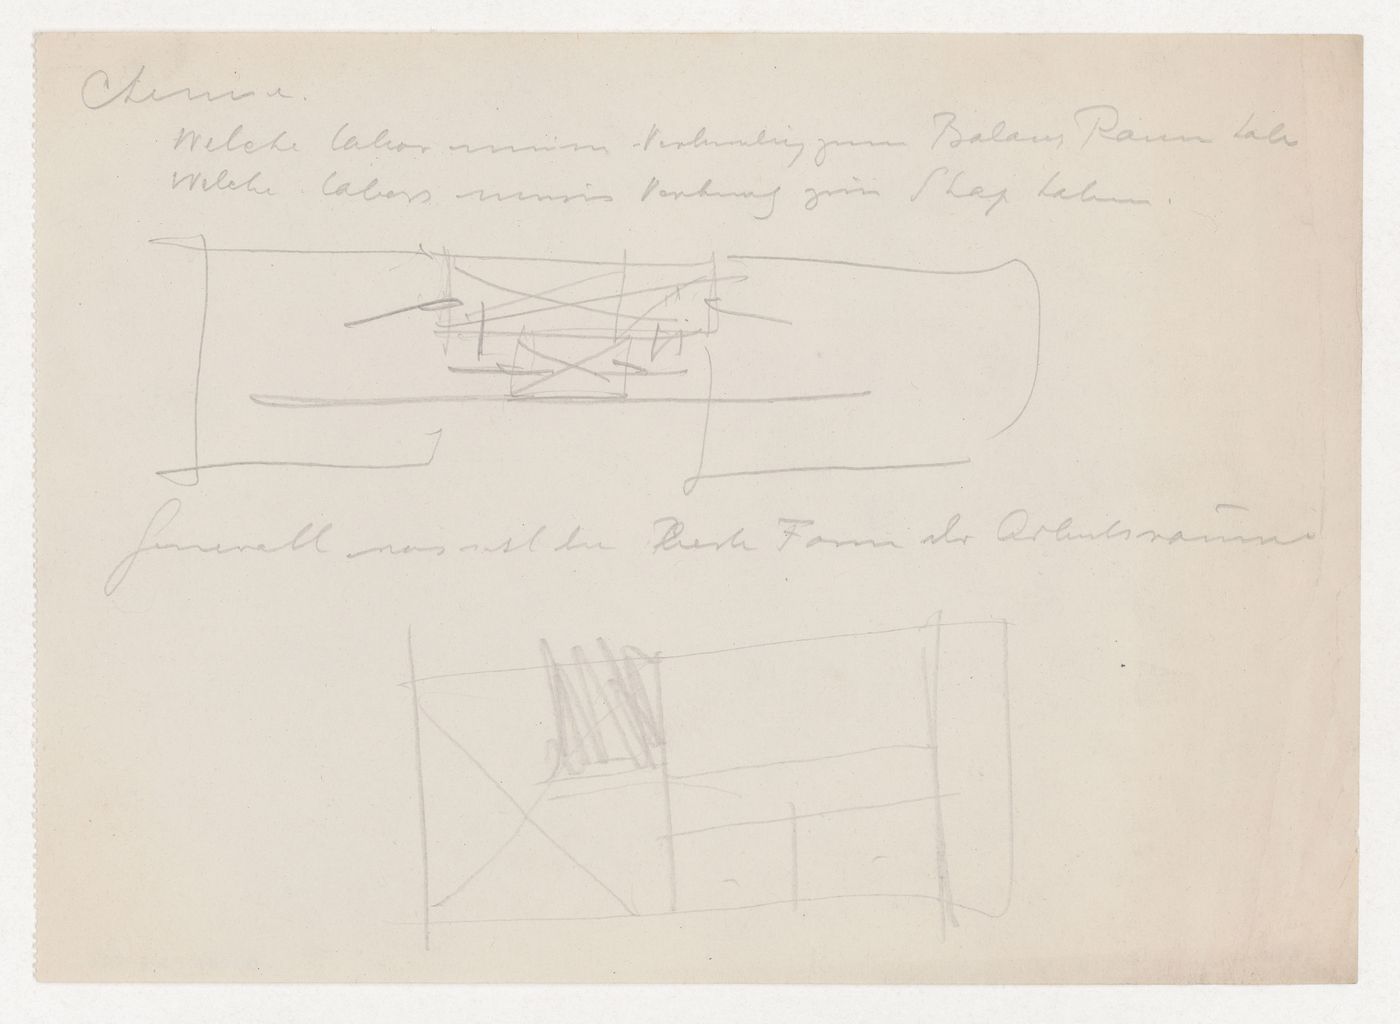 Chemie.
Welche Labor müssen Verbindung zum Balance Raum habe
Welche Labors müssen Verbindung zum Shop haben.
Generell was ist die Beste Form der Arbeitsräume